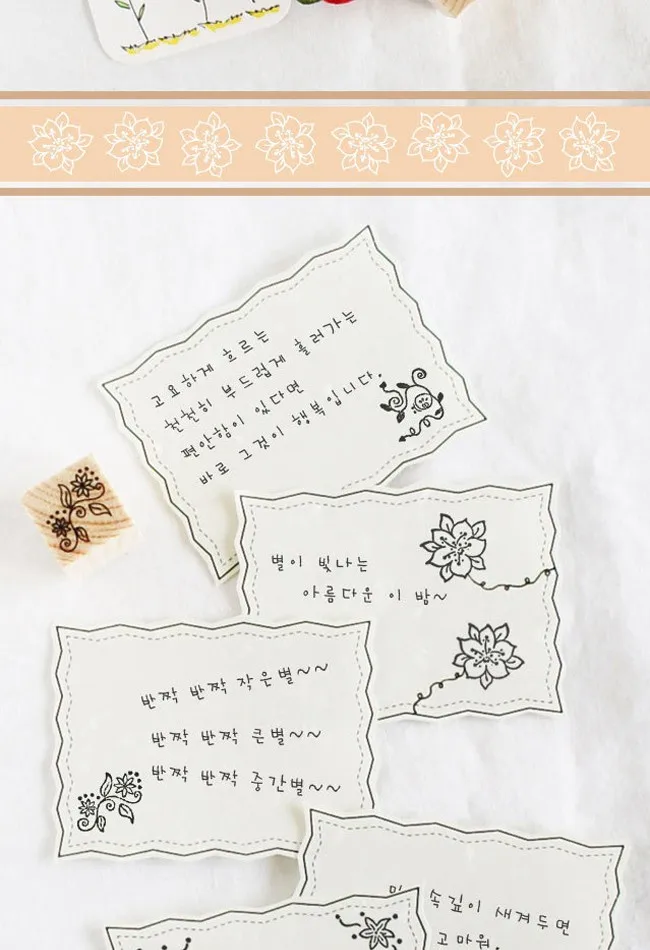 고요하게 흐르는
천천히 부드럽게 흘러가는
편안함이 있다면
바로 그것이 행복입니다.
별이 빛나는
아름다운 이 밤~
반짝 반짝 작은별~~
반짝 반짝 큰별~~
반짝 반짝 중간별~~
속깊이 새겨두면
고마워.